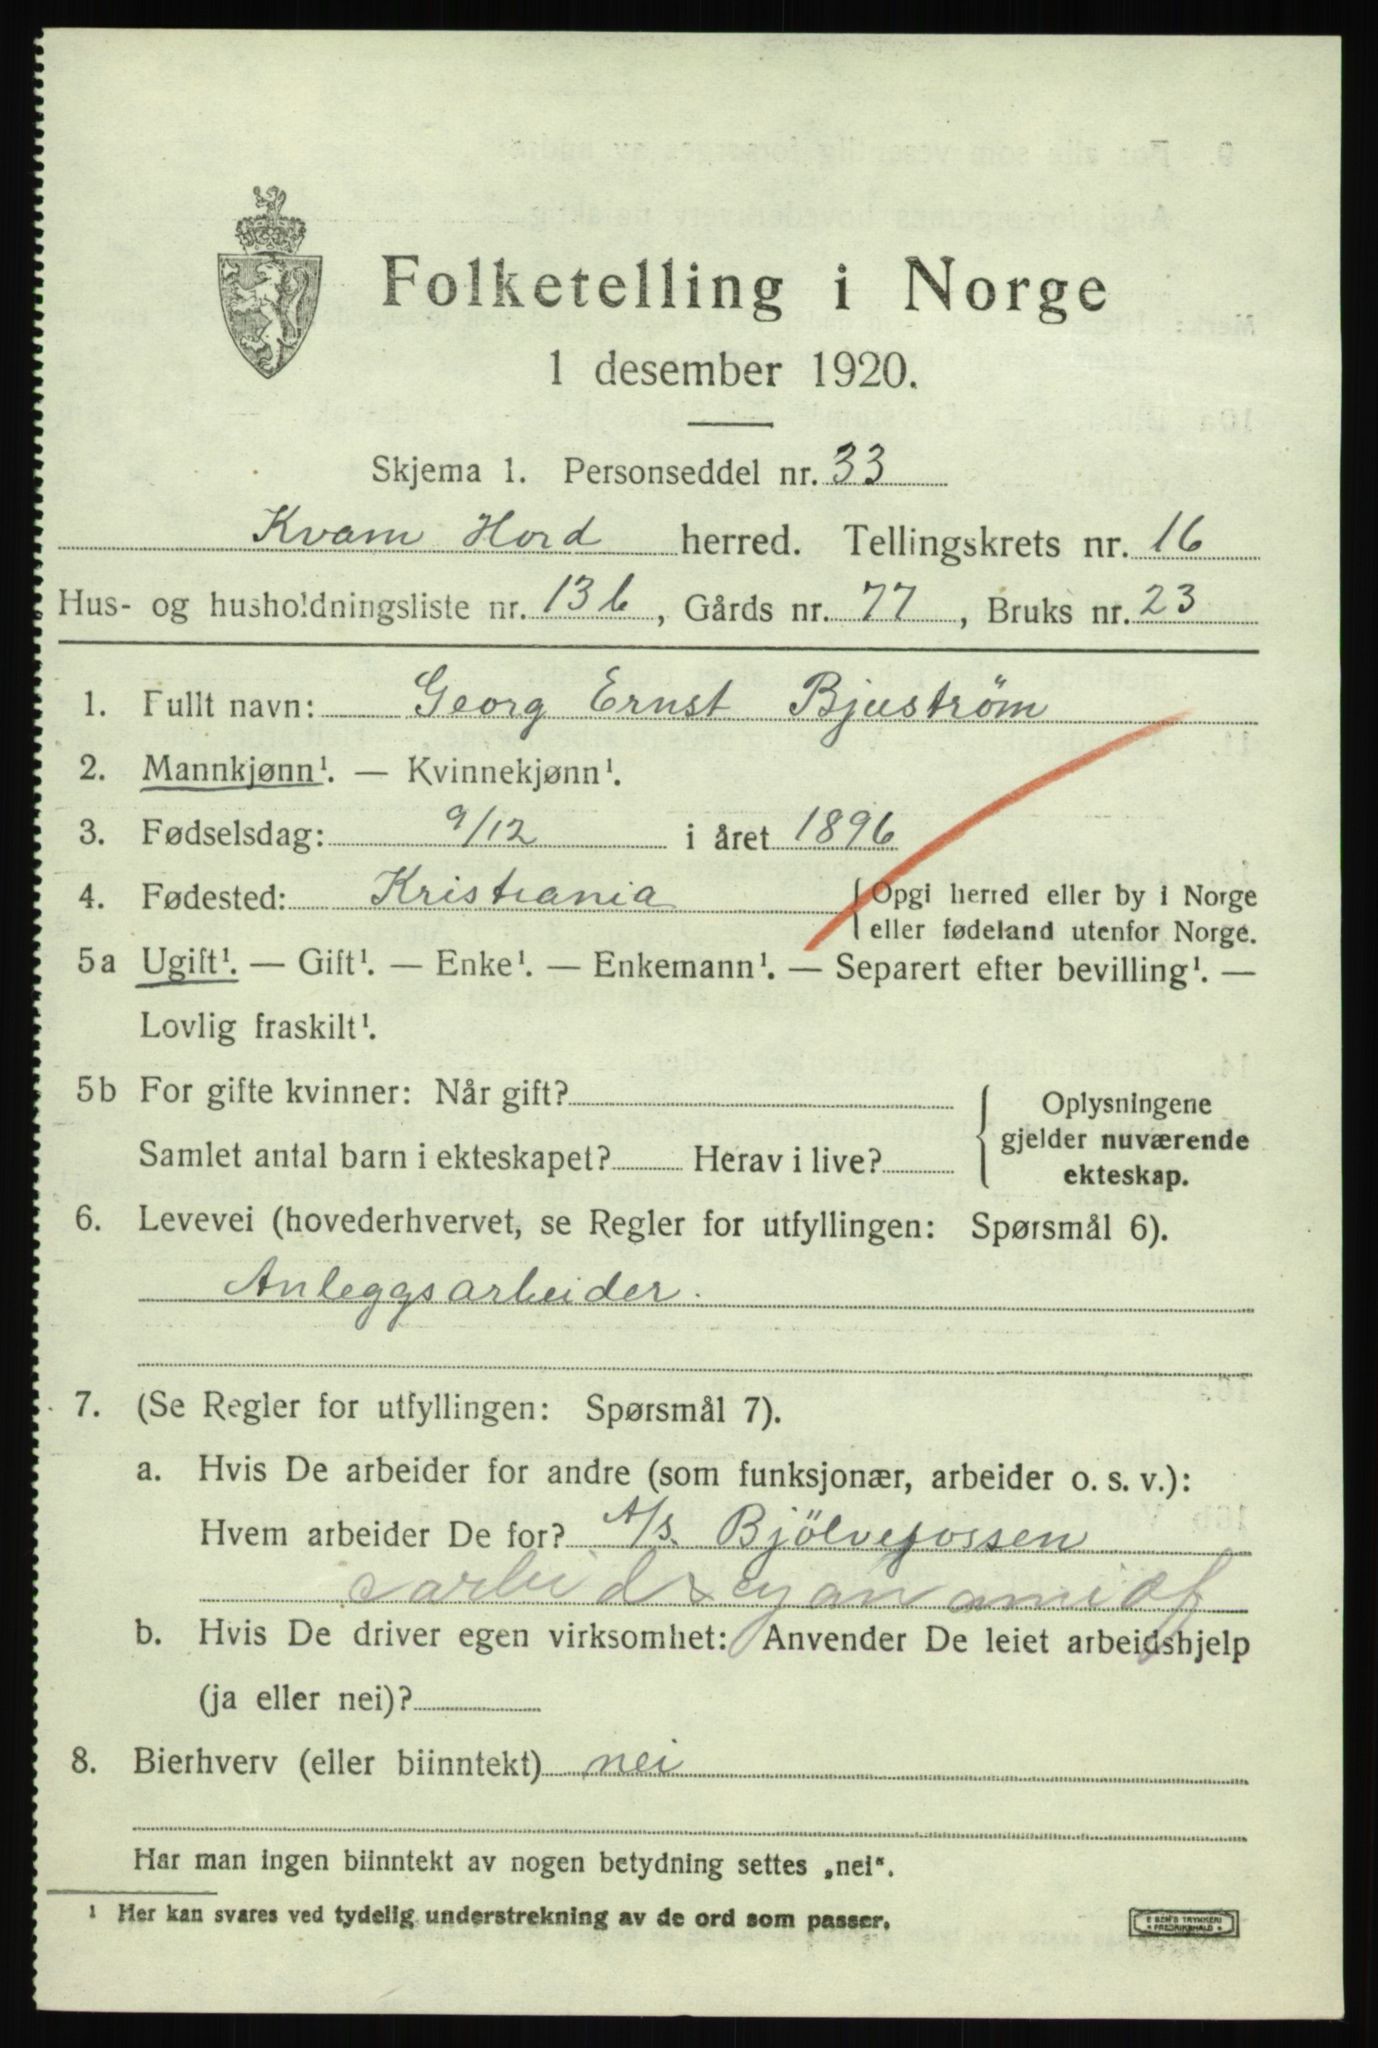 Folketelling i Norge
1 desember 1920.
Skjema 1. Personseddel nr. 33
Kvam Hord herred. Tellingskrets nr. 16
Hus- og husholdningsliste nr. 136, Gårds nr. 77, Bruks nr. 23
1. Fullt navn: Georg Ernst Bjuström
2. Mannkjønn¹. — Kvinnekjønn¹.
3. Fødselsdag: 9/12 i året 1896
4. Fødested: Kristiania { Opgi herred eller by i Norge
eller fødeland utenfor Norge.
5a Ugift¹. — Gift¹. — Enke¹. — Enkemann¹. — Separert efter bevilling¹. —
Lovlig fraskilt¹.
5b For gifte kvinner: Når gift?
Samlet antal barn i ekteskapet? Herav i live?
{ Oplysningene
gjelder nuværende
ekteskap.
6. Levevei (hovederhvervet, se Regler for utfyllingen: Spørsmål 6).
Anleggsarbeider.
7. (Se Regler for utfyllingen: Spørsmål 7).
a. Hvis De arbeider for andre (som funksjonær, arbeider o. s. v.):
Hvem arbeider De for? A/s. Bjölvefossen
b. Hvis De driver egen virksomhet: Anvender De leiet arbeidshjelp
(ja eller nei)?
8. Bierhverv (eller biinntekt) nei
Har man ingen biinntekt av nogen betydning settes „nei“.
¹ Her kan svares ved tydelig understrekning av de ord som passer.